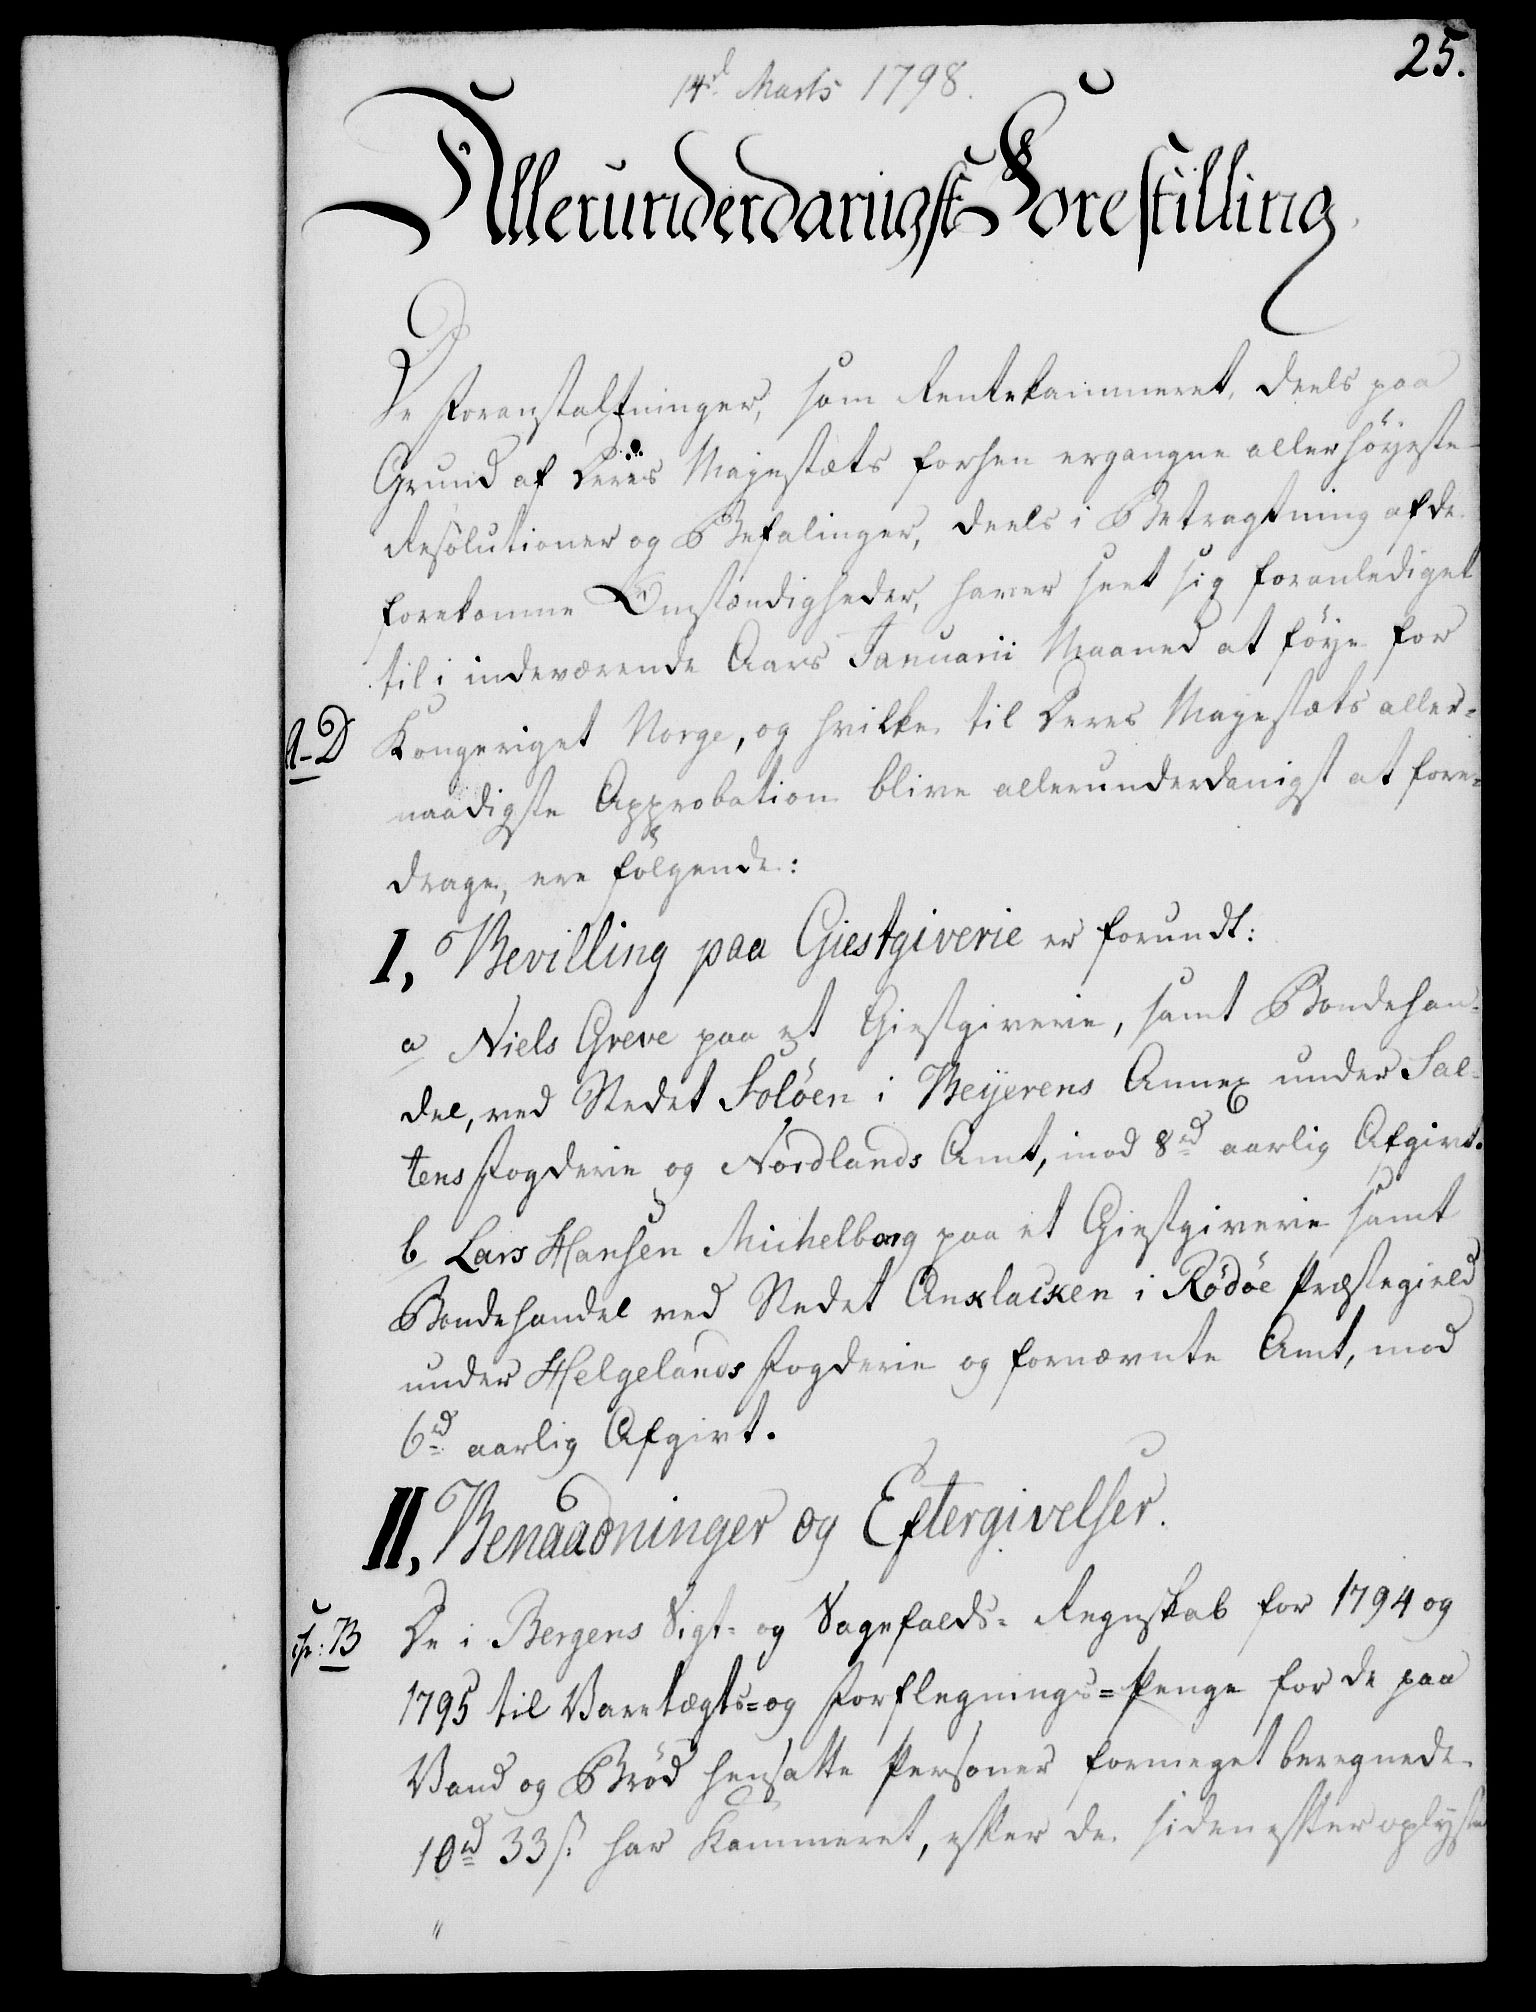 25.
14d Marts 1798.
Allerunderdanigst Forestilling.
De Foranstaltninger, som Rentekammeret, deels paa
Grund af Deres Majestæts forhen ergangne allerhöyeste
Resolutioner og Befalinger, deels i Betragtning af de
forekomne Omstændigheder, haver seet sig foranlediget
til i indeværende Aars Januarii Maaned at föye for
A-D
Kongeriget Norge, og hvilke til Deres Majestæts aller=
naadigste Approbation blive allerunderdanigst at fore=
drage, ere fölgende:
I, Bevilling paa Giestgiverie er forundt:
a Niels Greve paa et Giestgiverie, samt Bondehan=
del, ved Stedet Solöen i Beyerens Annex under Sal=
tens Fogderie og Nordlands Amt, mod 8rd aarlig Afgivt.
b Lars Hansen Michelborg paa et Giestgiverie samt
Bondehandel ved Stedet Anklacken i Rödöe Præstegield
under Helgelands Fogderie og fornævnte Amt, mod
6rd aarlig Afgivt.
II, Benaadninger og Eftergivelser.
B
De i Bergens Sigt= og Sagefalds= Regnskab for 1794 og
1795 til Varetægts= og Forflegnings= Penge for de paa
Vand og Bröd hensatte Personer formeget beregnede
10rd 33 s. har Kammeret, efter de sidenefter oplyste
"